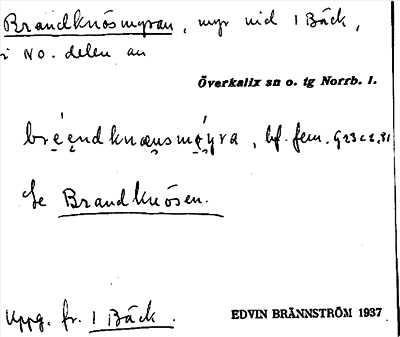 Brandknösmyran, myr vid 1 Bäck,
i NO. delen av
Överkalix sn o. tg Norrb. l.
bréendknœnsmǿyra, bf. fem.
Se Brandknösen.
Uppg. fr. 1 Bäck.
EDVIN BRÄNNSTRÖM 1937